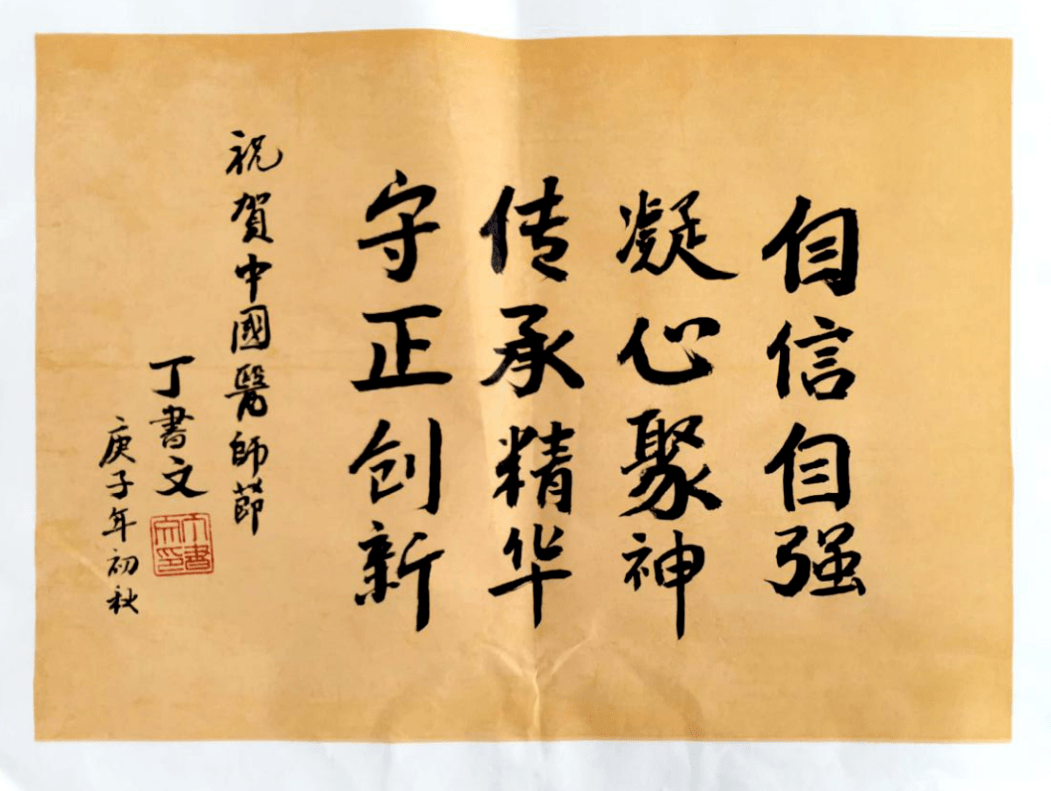 自信自强
凝心聚神
传承精华
守正创新
祝賀中國醫師節
丁書文
庚子年初秋
丁書文印